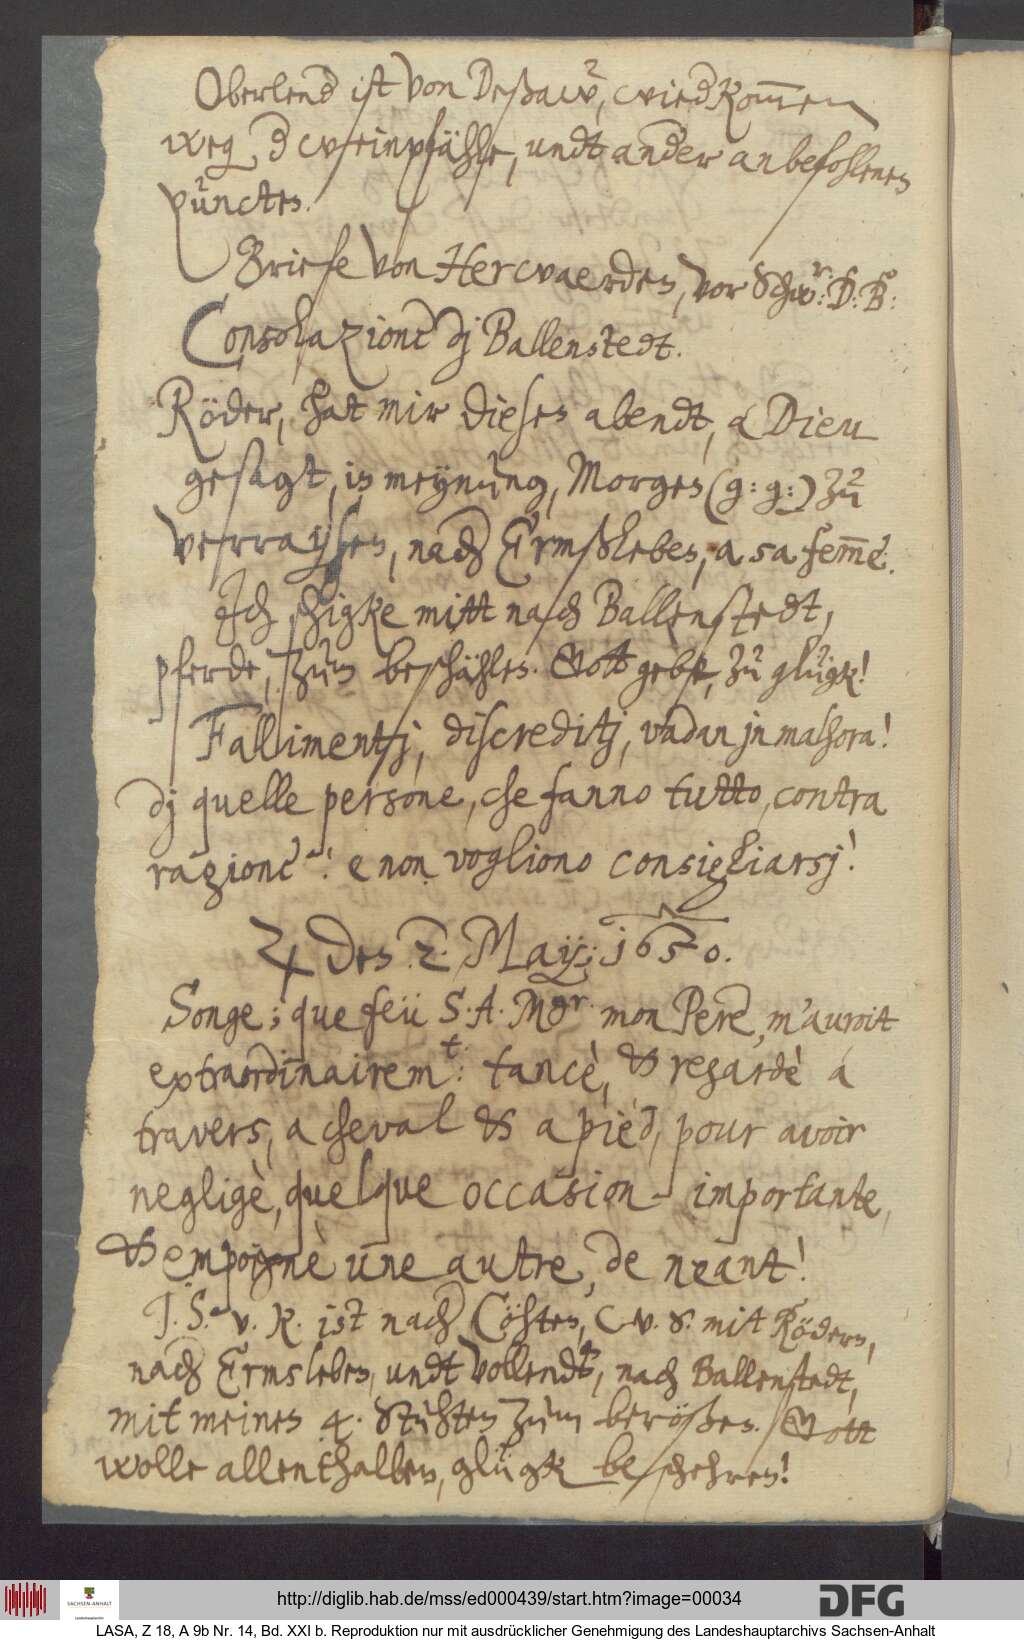 Oberlend ist von Deßaw, wiedkom̅en
weg d weinpfähle, undt ander anbefohlenen
puncten.
Briefe von Herwaerden, vor Schwr: D: B:
Consolazione dj Ballenstedt.
Röder, hat mir diesen abendt, a Dieu
gesagt, in meynung, Morgen (g: g:) zu
verraysen, nach Ermßleben, a sa fem̅e.
Ich schigke mitt nach Ballenstedt,
pferde, zum beschählen. Gott gebe, zu glügk!
Fallimentsj, discreditj, vadan jn malhora!
dj quelle persone, che fanno tutto, contra
ragione! e non vogliono consigliarsj!
♃ den 2. Maÿ; 1650.
Songe; que feu S. A. Mgr. mon Pere, m'auroit
extraordinairemt: tancè, & regardè a
travers, a cheval & a pied, pour avoir
negligè, quelque occasion importante,
& empoignè une autre, de neant!
J. S. v. K. ist nach Cöhten, C. v. S. mit Rödern,
nach Ermsleben, undt vollendt, nach Ballenstedt,
mit meinen 4. Stuhten zum berößen. Gott
wolle allenthalben, glügk beschehren!
http://diglib.hab.de/mss/ed000439/start.htm?image=00034
DFG
SACHSEN-ANHALT
Landeshauptarchiv
LASA, Z 18, A 9b Nr. 14, Bd. XXI b. Reproduktion nur mit ausdrücklicher Genehmigung des Landeshauptarchivs Sachsen-Anhalt